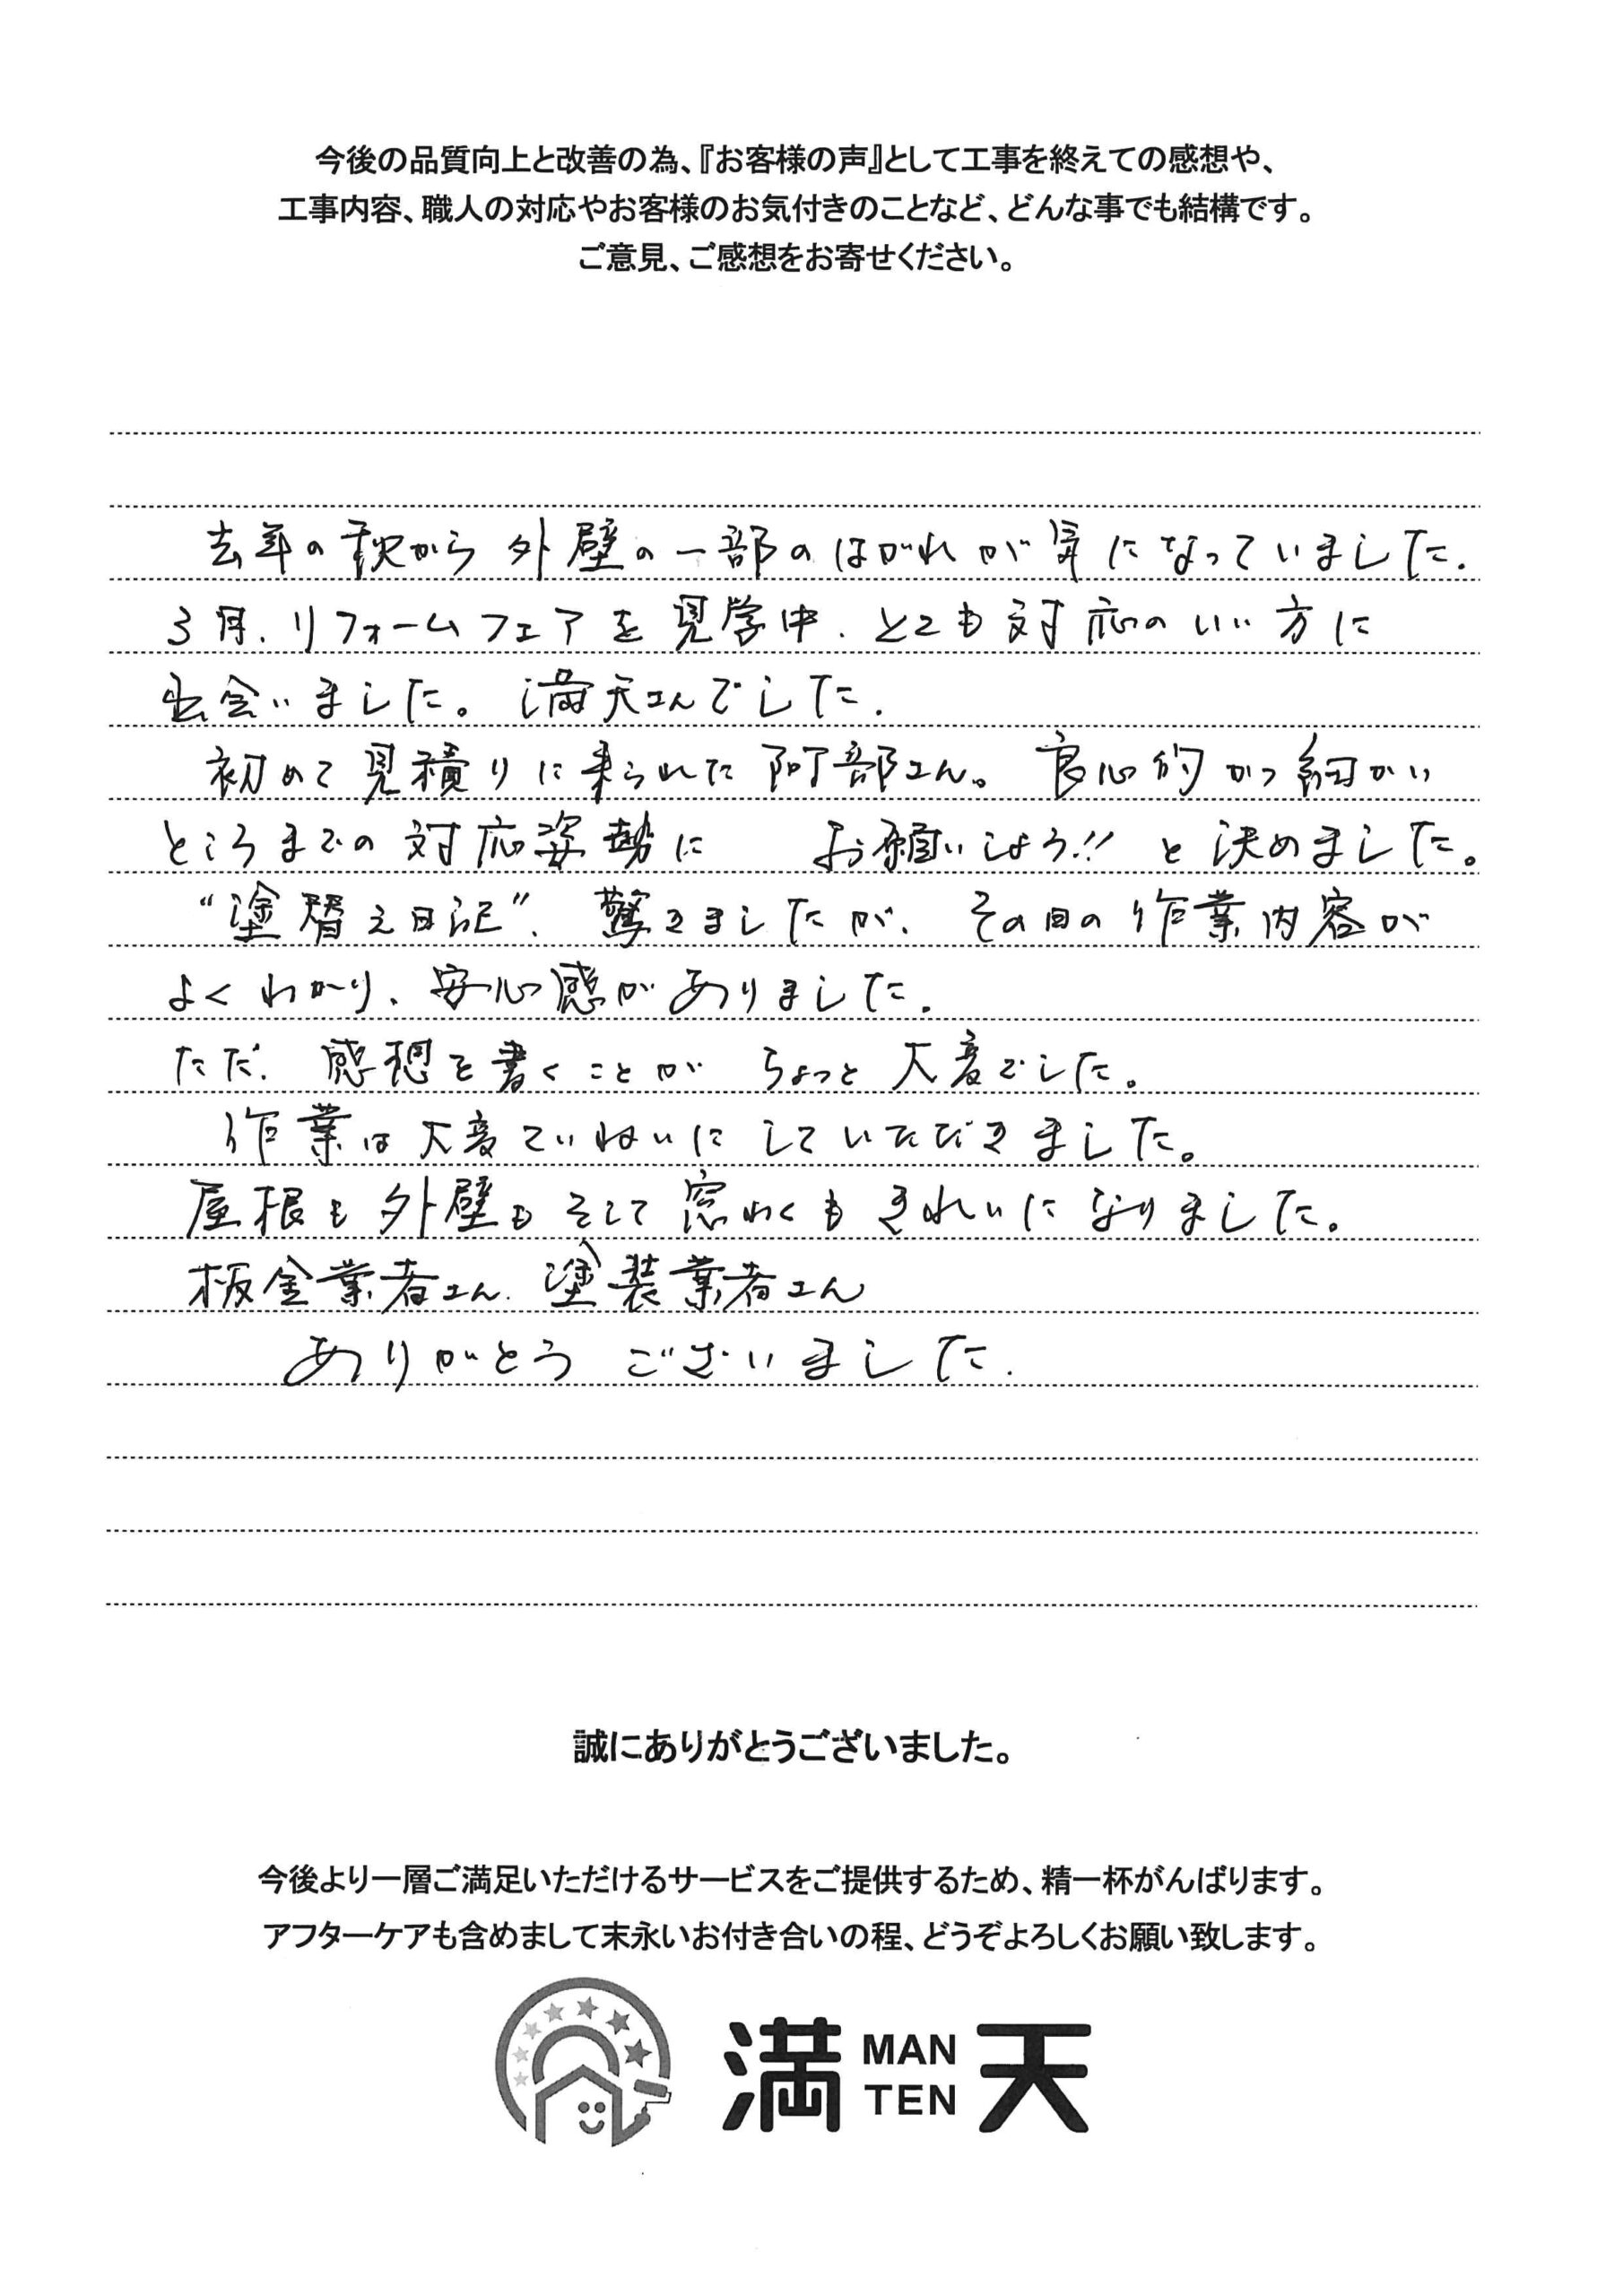 今後の品質向上と改善の為、『お客様の声』として工事を終えての感想や、
工事内容、職人の対応やお客様のお気付きのことなど、どんな事でも結構です。
ご意見、ご感想をお寄せください。
去年の秋から外壁の一部のはがれが気になっていました.
3月、リフォームフェアを見学中、とても対応のいい方に
出会いました。満天さんでした.
初めて見積りに来られた阿部さん。良心的かつ細かい
ところまでの対応姿勢に お願いしよう!! と決めました。
“塗替え日記”、驚きましたが、その日の作業内容が
よくわかり、安心感がありました.
ただ、感想を書くことが ちょっと大変でした。
作業は大変ていねいにしていただきました。
屋根も外壁もそして窓わくもきれいになりました。
板金業者さん、塗装業者さん
ありがとう ございました.
誠にありがとうございました。
今後より一層ご満足いただけるサービスをご提供するため、精一杯がんばります。
アフターケアも含めまして末永いお付き合いの程、どうぞよろしくお願い致します。
満 MAN TEN 天